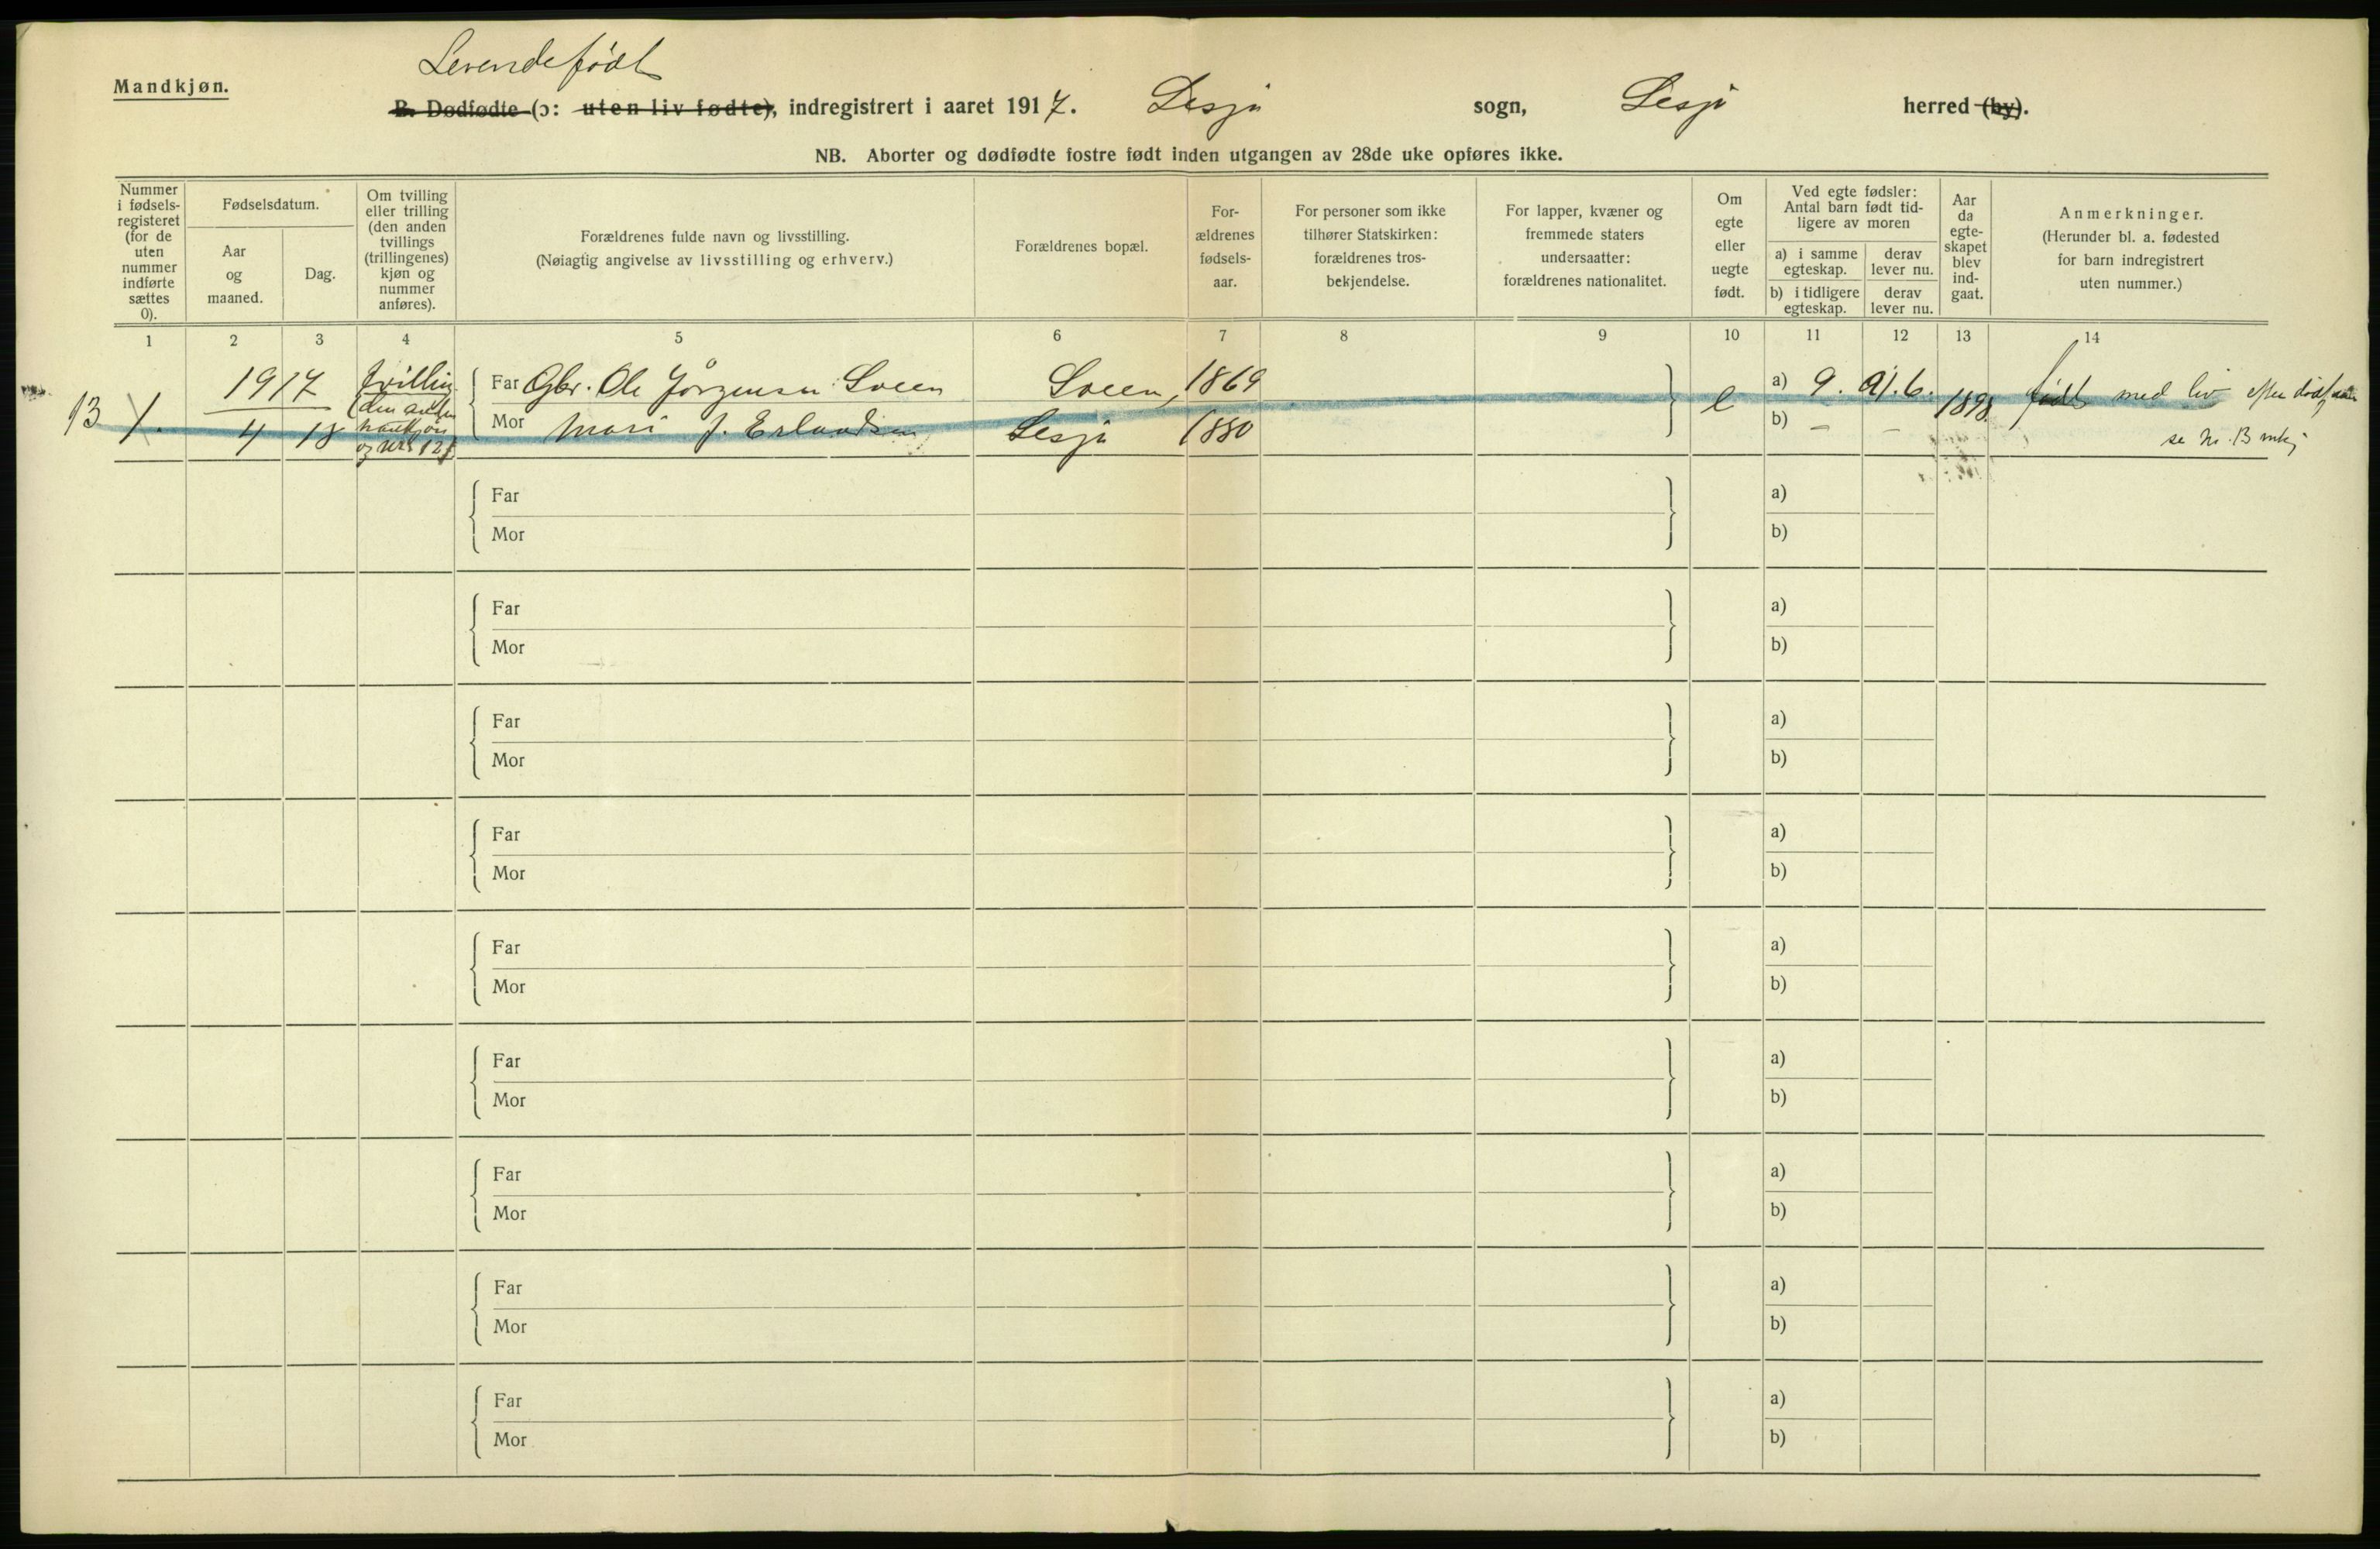 Mandkjøn.
Levendefødt
B. Dødfødte (ɔ: uten liv fødte), indregistrert i aaret 1917. Lesja sogn, Lesja herred (by).
NB. Aborter og dødfødte fostre født inden utgangen av 28de uke opføres ikke.
Nummer
i fødsels-
registeret
(for de
uten
nummer
indførte
sættes
0).
Fødselsdatum.
Aar
og
maaned.
Dag.
Om tvilling
eller trilling
(den anden
tvillings
(trillingenes)
kjøn og
nummer
anføres).
Forældrenes fulde navn og livsstilling.
(Nøiagtig angivelse av livsstilling og erhverv.)
Forældrenes bopæl.
For-
ældrenes
fødsels-
aar.
For personer som ikke
tilhører Statskirken:
forældrenes tros-
bekjendelse.
For lapper, kvæner og
fremmede staters
undersaatter:
forældrenes nationalitet.
Om
egte
eller
uegte
født.
Ved egte fødsler:
Antal barn født tid-
ligere av moren
a) i samme
egteskap.
derav
lever nu.
b) i tidligere
egteskap.
derav
lever nu.
Aar
da
egte-
skapet
blev
ind-
gaat.
Anmerkninger.
(Herunder bl. a. fødested
for barn indregistrert
uten nummer.)
1 2 3 4 5 6 7 8 9 10 11 12 13 14
13 1. 1917 4 18
tvilling
(den anden
mankjøn
og nr. 12)
Far Gbr. Ole Jörgensen Sveen Sveen, 1869
Mor Mari J. Erlandsen Lesja 1880
e a) 9. 6. 1898
b) — —
født med liv efter
se Nr. 13 mkj
Far a)
Mor b)
Far a)
Mor b)
Far a)
Mor b)
Far a)
Mor b)
Far a)
Mor b)
Far a)
Mor b)
Far a)
Mor b)
Far a)
Mor b)
Far a)
Mor b)